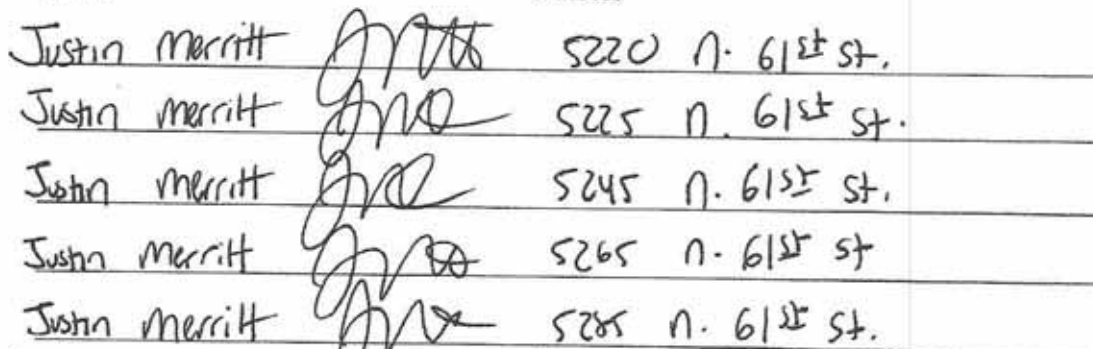 Justin Merritt 5220 n. 61st St.
Justin Merritt 5225 n. 61st St.
Justin Merritt 5245 n. 61st St.
Justin Merritt 5265 n. 61st St
Justin Merritt 5285 n. 61st St.